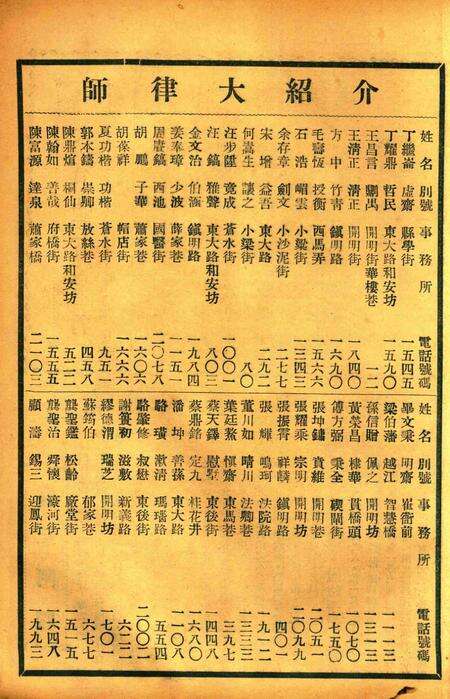 介紹大律師
姓名 別號 事務所 電話號碼
丁繼崙 虛齋 縣學街 一五四五
丁耀鼎 哲民 東大路和安坊 一五九〇
王昌言 劇禹 開明街華樓巷 一二〇
王清正 清正 開明街 一八四〇
方中 竹青 鎮明路 一六九〇
毛壽恆 授衡 西馬弄 五六六
石浩 嵋雲 小梁街 一三四三
余存章 劍文 小沙泥街 二七七
宋增 益吾 東大路 二九二
何嵩生 讓之 小梁街 八〇
汪步隆 竟成 蒼水街 一〇〇一
汪鎬 雅聲 東大路和安坊 八〇三
金文治 伯涵 鎮明路 一九八四
姜奉璋 少波 薛家巷 一一五一
周賡鎬 西池 國醫街 二〇七八
胡鵬 子華 蕭家巷 一六〇六
胡葆祥 帽店街 一六六六
夏功楷 功楷 蒼水街 九五一
郭本鑄 崇卿 放絲巷 四五八
陳鼎煊 炯仙 東大路和安坊 五二二
陳翰如 善哉 府橋街 一五五五
陳富源 達泉 蕭家橋 二一〇三
姓名 別號 事務所 電話號碼
畢文秉 明齋 崔衙前 一一一三
梁伯藩 越江 智慧橋 一一三
孫信贈 佩之 開明坊 一三一三
黃榮昌 棣華 貫橋頭 一〇七〇
傅方弼 秉全 碶閘街 一七五〇
張坤鏞 賁維 開明巷 二〇五一
張耀乘 宗明 開明坊 二〇九九
張振霄 祥麟 鎮明路 四〇一
張輝 鳴珂 法院路 一九一二
董川如 晴川 法卿巷 一三三三
葉廷鰲 愼齋 東馬巷 三九七
蔡天鐸 慰堅 東後街 一四四八
蔡鼎銘 定九 桂花井 一六八〇
潘坤 善孫 東大路 一一〇八
駱璜 漱清 瑪瑙路 五五四
駱肇修 叔懋 東後街 二〇〇二
謝質初 滋敷 新義路 六二二
繆德渭 瑞芝 開明坊 一七〇一
蘇筠伯 郁家巷 六七七
龔聖鑑 松齡 廠堂街 一五一五
龔聖治 舜懷 濠河街 一六四八
顧濤 錫三 迎鳳街 一九九三